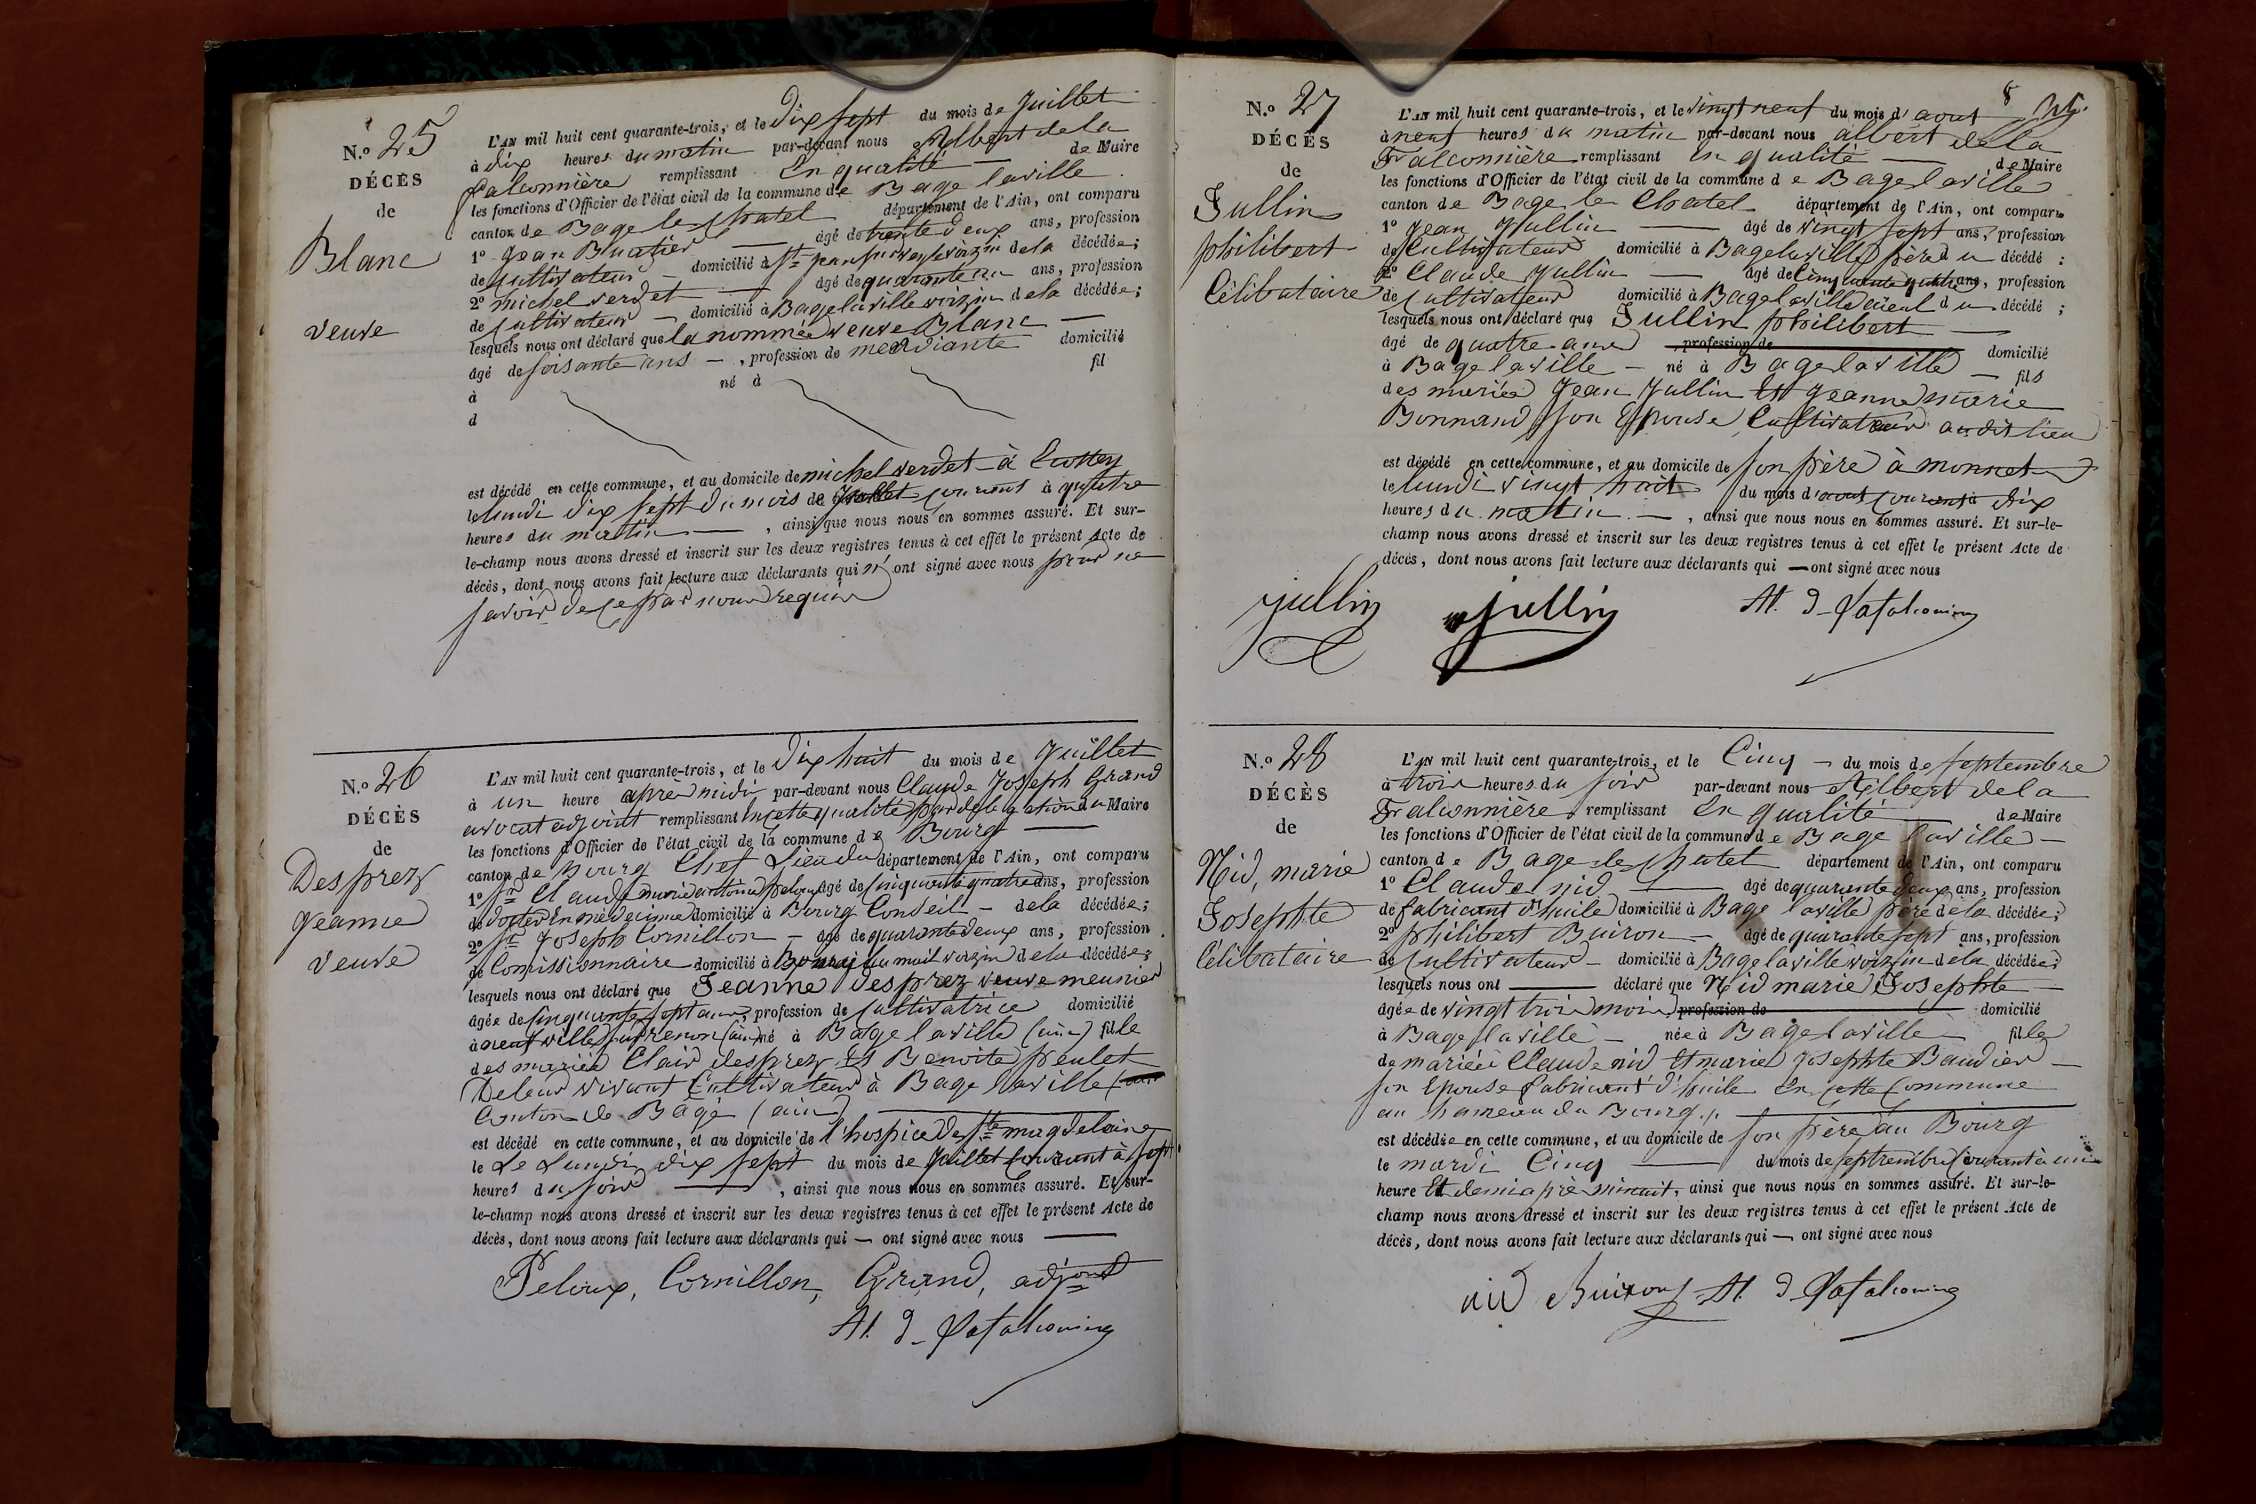 N.º 25
DÉCÈS
de
Blanc
veuve
L'AN mil huit cent quarante-trois, et le dix sept du mois de Juillet
à dix heures du matin par-devant nous Albert de la
falconnière remplissant en qualité de Maire
les fonctions d'Officier de l'état civil de la commune de Bage laville
canton de Bage le chatel département de l'Ain, ont comparu
1º Jean Buatier âgé de trente deux ans, profession
de cultivateur domicilié à St jean voizin de la décédée;
2º michel verdet âgé de quarante un ans, profession
de cultivateur domicilié à Bage laville voizin de la décédée;
lesquels nous ont déclaré que la nommée veuve Blanc
âgé de soisante ans, profession de mendiante domicilié
à né à fil
d
est décédé en cette commune, et au domicile de michel verdet à
le lundi dix sept du mois de Juillet courant à quatre
heures du matin, ainsi que nous nous en sommes assuré. Et sur-
le-champ nous avons dressé et inscrit sur les deux registres tenus à cet effet le présent Acte de
décès, dont nous avons fait lecture aux déclarants qui n'ont signé avec nous pour ne
savoir de ce par nous requis
N.º 26
DÉCÈS
de
Desprez
jeanne
veuve
L'AN mil huit cent quarante-trois, et le dix huit du mois de Juillet
à un heure après midi par-devant nous Claude Joseph Grand
avocat adjoint remplissant en cette qualité par délégation du Maire
les fonctions d'Officier de l'état civil de la commune de Bourg
canton de bourg Chef Lieu du département de l'Ain, ont comparu
1º Sr Claude marie antoine peloux âgé de cinquante quatre ans, profession
de docteur en médecinne domicilié à Bourg Conseil de la décédée;
2º Sr Joseph Cornillon âgé de quarante deux ans, profession
de Comissionnaire domicilié à Bourg au mail voizin de la décédée;
lesquels nous ont déclaré que Jeanne Desprez veuve meunier
âgée de cinquante sept ans, profession de cultivatrice domicilié
à neuville sur renon (ain) né à Bage laville (ain) fille
des mariés Clair desprez Et Benoite peulet
De leur vivant Cultivateur à Bage laville
Canton de Bagé (ain)
est décédé en cette commune, et au domicile de l'hospice de Ste magdeleine
le Le Lundi dix sept du mois de Juillet courant à sept
heures du soir, ainsi que nous nous en sommes assuré. Et sur-
le-champ nous avons dressé et inscrit sur les deux registres tenus à cet effet le présent Acte de
décès, dont nous avons fait lecture aux déclarants qui — ont signé avec nous
Peloux, Cornillon, Grand, adjoint
Al. d Lafalconnière
8
N.º 27
DÉCÈS
de
Jullin
philibert
Célibataire
L'AN mil huit cent quarante-trois, et le vingt neuf du mois d'aout
à neuf heures du matin par-devant nous albert de la
Falconnière remplissant en qualité de Maire
les fonctions d'Officier de l'état civil de la commune de Bage laville
canton de Bage le Chatel département de l'Ain, ont comparu
1º Jean Jullin âgé de vingt sept ans, profession
de Cultivateur domicilié à Bage laville père du décédé;
2º Claude Jullin âgé de cinquante quatre ans, profession
de Cultivateur domicilié à Bage laville aieul du décédé;
lesquels nous ont déclaré que Jullin philibert
âgé de quatre ans profession de domicilié
à Bage laville né à Bage laville fils
des mariés Jean Jullin Et Jeanne marie
Bonnand son Epouse Cultivateur audit lieu
est décédé en cette commune, et au domicile de son père à monnet
le lundi vingt huit du mois d'aout courant à dix
heures du matin, ainsi que nous nous en sommes assuré. Et sur-le-
champ nous avons dressé et inscrit sur les deux registres tenus à cet effet le présent Acte de
décès, dont nous avons fait lecture aux déclarants qui — ont signé avec nous
jullin jullin Al. d Lafalconnière
N.º 28
DÉCÈS
de
Nid, marie
Josephte
Célibataire
L'AN mil huit cent quarante-trois, et le Cinq du mois de septembre
à trois heures du soir par-devant nous Albert de la
Falconnière remplissant en qualité de Maire
les fonctions d'Officier de l'état civil de la commune de Bage laville
canton de Bage le chatel département de l'Ain, ont comparu
1º Claude nid âgé de quarante deux ans, profession
de fabricant d'huile domicilié à Bage laville père de la décédée;
2º philibert Buiron âgé de quarante sept ans, profession
de Cultivateur domicilié à Bage laville voizin de la décédée;
lesquels nous ont déclaré que Nid marie Josephte
âgée de vingt trois mois profession de domicilié
à Bage laville née à Bage laville fille
de mariés Claude nid Et marie Josephte Baudier
son Epouse fabricant d'huile En cette Commune
au hameau du Bourg
est décédée en cette commune, et au domicile de son père au Bourg
le mardi Cinq du mois de septembre courant à une
heure Et demi après minuit, ainsi que nous nous en sommes assuré. Et sur-le-
champ nous avons dressé et inscrit sur les deux registres tenus à cet effet le présent Acte de
décès, dont nous avons fait lecture aux déclarants qui — ont signé avec nous
nid Buiron Al. d Lafalconnière